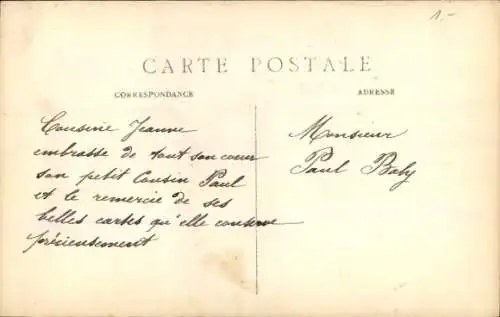 1.-
CARTE POSTALE
CORRESPONDANCE
ADRESSE
Cousine Jeanne
embrasse de tout son coeur
son petit Cousin Paul
et le remercie de ses
belles cartes qu'elle conserve
précieusement
Monsieur
Paul Baby